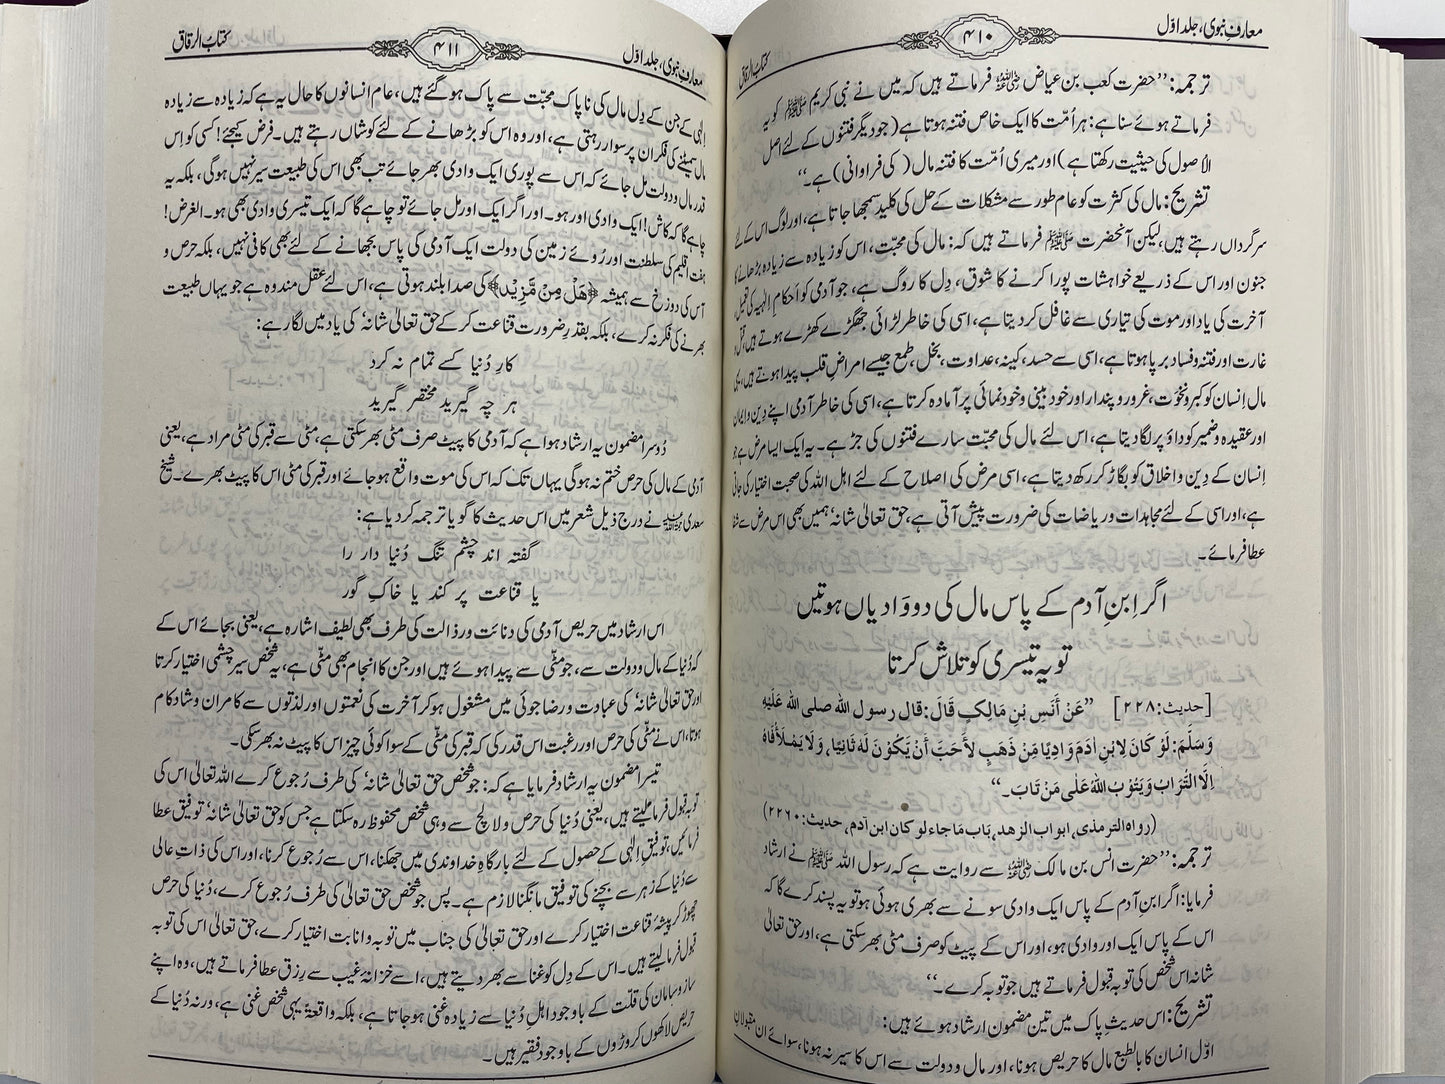 معارفِ نبوی، جلد اوّل
۴۱۰
کتابُ الرقاق
ترجمہ: ”حضرت کعب بن عیاض رضی اللہ عنہ فرماتے ہیں کہ میں نے نبی کریم ﷺ کو یہ
فرماتے ہوئے سنا ہے: ہر اُمّت کا ایک خاص فتنہ ہوتا ہے (جو دیگر فتنوں کے لئے اصل
الاصول کی حیثیت رکھتا ہے) اور میری اُمّت کا فتنہ مال (کی فراوانی) ہے۔“
تشریح: مال کی کثرت کو عام طور سے مشکلات کے حل کی کلید سمجھا جاتا ہے، اور لوگ اس کے لئے
سرگرداں رہتے ہیں، لیکن آنحضرت ﷺ فرماتے ہیں کہ: مال کی محبّت، اس کو زیادہ سے زیادہ بڑھانے کا
جنون اور اس کے ذریعے خواہشات پورا کرنے کا شوق، دِل کا روگ ہے، جو آدمی کو اَحکامِ الٰہیہ کی تعمیل
آخرت کی یاد اور موت کی تیاری سے غافل کردیتا ہے، اسی کی خاطر لڑائی جھگڑے کھڑے ہوتے ہیں، قتل و
غارت اور فتنہ و فساد برپا ہوتا ہے، اسی سے حسد، کینہ، عداوت، بخل، طمع جیسے امراضِ قلب پیدا ہوتے ہیں، یہی
مال اِنسان کو کبر و نخوّت، غرور و پندار اور خود بینی و خود نمائی پر آمادہ کرتا ہے، اسی کی خاطر آدمی اپنے دِین و ایمان
اور عقیدہ و ضمیر کو داؤ پر لگادیتا ہے، اس لئے مال کی محبّت سارے فتنوں کی جڑ ہے۔ یہ ایک ایسا مرض ہے جو
انسان کے دِین و اخلاق کو بگاڑ کر رکھ دیتا ہے، اسی مرض کی اصلاح کے لئے اہل اللہ کی صحبت اختیار کی جاتی
ہے، اور اسی کے لئے مجاہدات و ریاضات کی ضرورت پیش آتی ہے، حق تعالیٰ شانہٗ ہمیں بھی اس مرض سے شفا
عطا فرمائے۔
اگر اِبنِ آدم کے پاس مال کی دو وَادیاں ہوتیں
تو یہ تیسری کو تلاش کرتا
[حدیث: ۲۲۸] ”عَنْ أَنَسِ بْنِ مَالِكٍ قَالَ: قال رسول الله صلى الله عَلَيْهِ
وَسَلَّمَ: لَوْ كَانَ لِابْنِ اٰدَمَ وَادِيًا مِّنْ ذَهَبٍ لَأَحَبَّ أَنْ يَكُوْنَ لَهُ ثَانِيًا، وَلَا يَمْلَأُ فَاهُ
اِلَّا التُّرَابُ وَيَتُوْبُ اللهُ عَلٰى مَنْ تَابَ۔“
(رواہ الترمذی، ابواب الزهد، باب ماجاء لو کان ابن آدم، حدیث: ۲۲۶۰)
ترجمہ: ”حضرت انس بن مالک رضی اللہ عنہ سے روایت ہے کہ رسول اللہ ﷺ نے ارشاد
فرمایا: اگر ابنِ آدم کے پاس ایک وادی سونے سے بھری ہوئی ہو تو یہ پسند کرے گا کہ
اس کے پاس ایک اور وادی ہو، اور اس کے پیٹ کو صرف مٹی بھر سکتی ہے، اور حق تعالیٰ
شانہ اس شخص کی توبہ قبول فرماتے ہیں جو توبہ کرے۔“
تشریح: اس حدیثِ پاک میں تین مضمون ارشاد ہوئے ہیں:
اوّل انسان کا بالطبع مال کا حریص ہونا، اور مال و دولت سے اس کا سیر نہ ہونا، سوائے ان مقبولانِ
معارفِ نبوی، جلد اوّل
۴۱۱
کتابُ الرقاق
اِلٰہی کے جن کے دِل مال کی ناپاک محبّت سے پاک ہوگئے ہیں، عام انسانوں کا حال یہ ہے کہ زیادہ سے زیادہ
مال سمیٹنے کی فکر ان پر سوار رہتی ہے، اور وہ اس کو بڑھانے کے لئے کوشاں رہتے ہیں۔ فرض کیجئے! کسی کو اِس
قدر مال و دولت مل جائے کہ اس سے پوری ایک وادی بھر جائے تب بھی اس کی طبیعت سیر نہیں ہوگی، بلکہ یہ
چاہے گا کہ کاش! ایک وادی اور ہو۔ اور اگر ایک اور مل جائے تو چاہے گا کہ ایک تیسری وادی بھی ہو۔ الغرض!
ہفت اقلیم کی سلطنت اور رُوئے زمین کی دولت ایک آدمی کی پیاس بجھانے کے لئے بھی کافی نہیں، بلکہ حرص و
آس کی دوزخ سے ہمیشہ ﴿هَلْ مِنْ مَّزِيْد﴾ کی صدا بلند ہوتی ہے، اس لئے عقل مند وہ ہے جو یہاں طبیعت
بھرنے کی فکر نہ کرے، بلکہ بقدرِ ضرورت قناعت کرکے حق تعالیٰ شانہٗ کی یاد میں لگا رہے:
کارِ دُنیا کسے تمام نہ کرد
ہر چہ گیرید مختصر گیرید
دُوسرا مضمون یہ ارشاد ہوا ہے کہ آدمی کا پیٹ صرف مٹی بھر سکتی ہے، مٹی سے قبر کی مٹی مراد ہے، یعنی
آدمی کے مال کی حرص ختم نہ ہوگی یہاں تک کہ اس کی موت واقع ہوجائے اور قبر کی مٹی اس کا پیٹ بھرے۔ شیخ
سعدی رحمۃ اللہ علیہ نے درج ذیل شعر میں اس حدیث کا گویا ترجمہ کردیا ہے:
گفتہ اند چشم تنگ دُنیا دار را
یا قناعت پر کند یا خاکِ گور
اس ارشاد میں حریص آدمی کی دنائت و رذالت کی طرف بھی لطیف اشارہ ہے، یعنی بجائے اس کے
کہ دُنیا کے مال و دولت سے، جو مٹی سے پیدا ہوئے ہیں اور جن کا انجام بھی مٹی ہے، یہ شخص سیر چشمی اختیار کرتا
اور حق تعالیٰ شانہٗ کی عبادت و رضا جوئی میں مشغول ہوکر آخرت کی نعمتوں اور لذّتوں سے کامران و شادکام
ہوتا، اس نے مٹی کی حرص اور رغبت اس قدر کی کہ قبر کی مٹی کے سوا کوئی چیز اس کا پیٹ نہ بھر سکی۔
تیسرا مضمون یہ ارشاد فرمایا ہے کہ: جو شخص حق تعالیٰ شانہٗ کی طرف رُجوع کرے اللہ تعالیٰ اس کی
توبہ قبول فرمالیتے ہیں، یعنی دُنیا کی حرص و لالچ سے وہی شخص محفوظ رہ سکتا ہے جس کو حق تعالیٰ شانہٗ توفیق عطا
فرمائیں، توفیقِ اِلٰہی کے حصول کے لئے بارگاہِ خداوندی میں جھکنا، اس سے رُجوع کرنا، اور اس کی ذاتِ عالی
سے دُنیا کے زہر سے بچنے کی توفیق مانگنا لازم ہے۔ پس جو شخص حق تعالیٰ کی طرف رُجوع کرے، دُنیا کی حرص
چھوڑ کر پیشۂ قناعت اختیار کرے اور حق تعالیٰ کی جناب میں توبہ و انابت اختیار کرے، حق تعالیٰ اس کی توبہ
قبول فرمالیتے ہیں۔ اس کے دِل کو غنا سے بھر دیتے ہیں، اسے خزانۂ غیب سے رِزق عطا فرماتے ہیں، وہ اپنے
ساز و سامان کی قلّت کے باوجود اہلِ دُنیا سے زیادہ غنی ہوجاتا ہے، بلکہ واقعۃً یہی شخص غنی ہے، ورنہ دُنیا کے
حریص لاکھوں کروڑوں کے باوجود فقیر ہیں۔